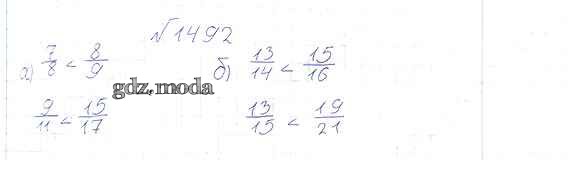 №1492
а) 7/8 < 8/9 б) 13/14 < 15/16
gdz.moda
9/11 < 15/17 13/15 < 19/21